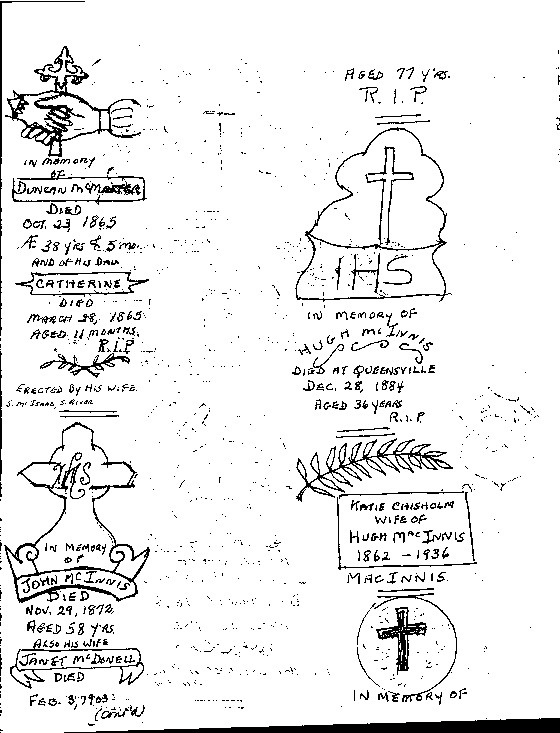 IN MEMORY
OF
DUNCAN McMASTER
DIED
OCT. 23, 1865
Æ 38 y'rs & 5 mo.
AND OF HIS DAU.
CATHERINE
DIED
MARCH 28, 1865
AGED 11 MONTHS.
R.I.P.
ERECTED BY HIS WIFE.
S. McISAAC, S. RIVER
IHS
IN MEMORY
OF
JOHN McINNIS
DIED
NOV. 29, 1872
AGED 58 YRS.
ALSO HIS WIFE
JANET McDONELL
DIED
FEB. 3, 1903
(CONT'D)
AGED 77 Y'RS.
R.I.P.
IHS
IN MEMORY OF
HUGH McINNIS
DIED AT QUEENSVILLE
DEC. 28, 1884
AGED 36 YEARS
R.I.P.
KATIE CHISHOLM
WIFE OF
HUGH MacINNIS
1862 - 1936
MACINNIS
IN MEMORY OF